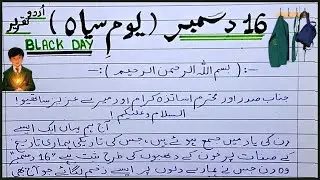 اردو تقریر
16 دسمبر ( یومِ سیاہ )
BLACK DAY
-: ( بسم اللہ الرحمن الرحیم ) :-
جناب صدر اور محترم اساتذہ کرام اور میرے عزیز ساتھیو!
السلام علیکم!
آج ہم یہاں ایک ایسے
دن کی یاد میں جمع ہوئے ہیں، جس کی تاریکی ہماری تاریخ
کے صفحات پر خون کے دھبوں کی طرح ثبت ہے "16 دسمبر"
وہ دن جس نے ہمارے دلوں پر ایسے زخم لگائے جو آج بھی